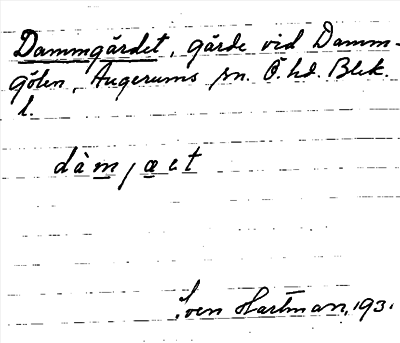 Dammgärdet, gärde vid Damm-
gölen, Augerums sn. Ö. hd. Blek.
l.
dàmjæet
Sven Hartman, 1931